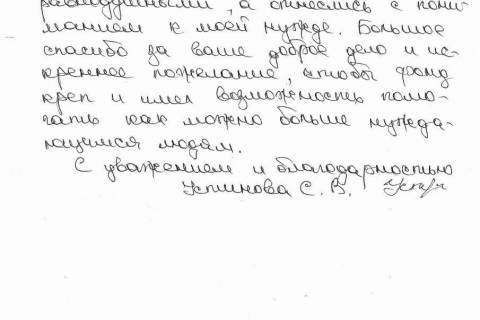 равнодушными, а отнеслись с пони-
манием к моей нужде. Большое
спасибо за ваше доброе дело и ис-
креннее пожелание, чтобы фонд
креп и имел возможность помо-
гать как можно больше нужда-
ющимся людям.
С уважением и благодарностью
Устинова С. В.